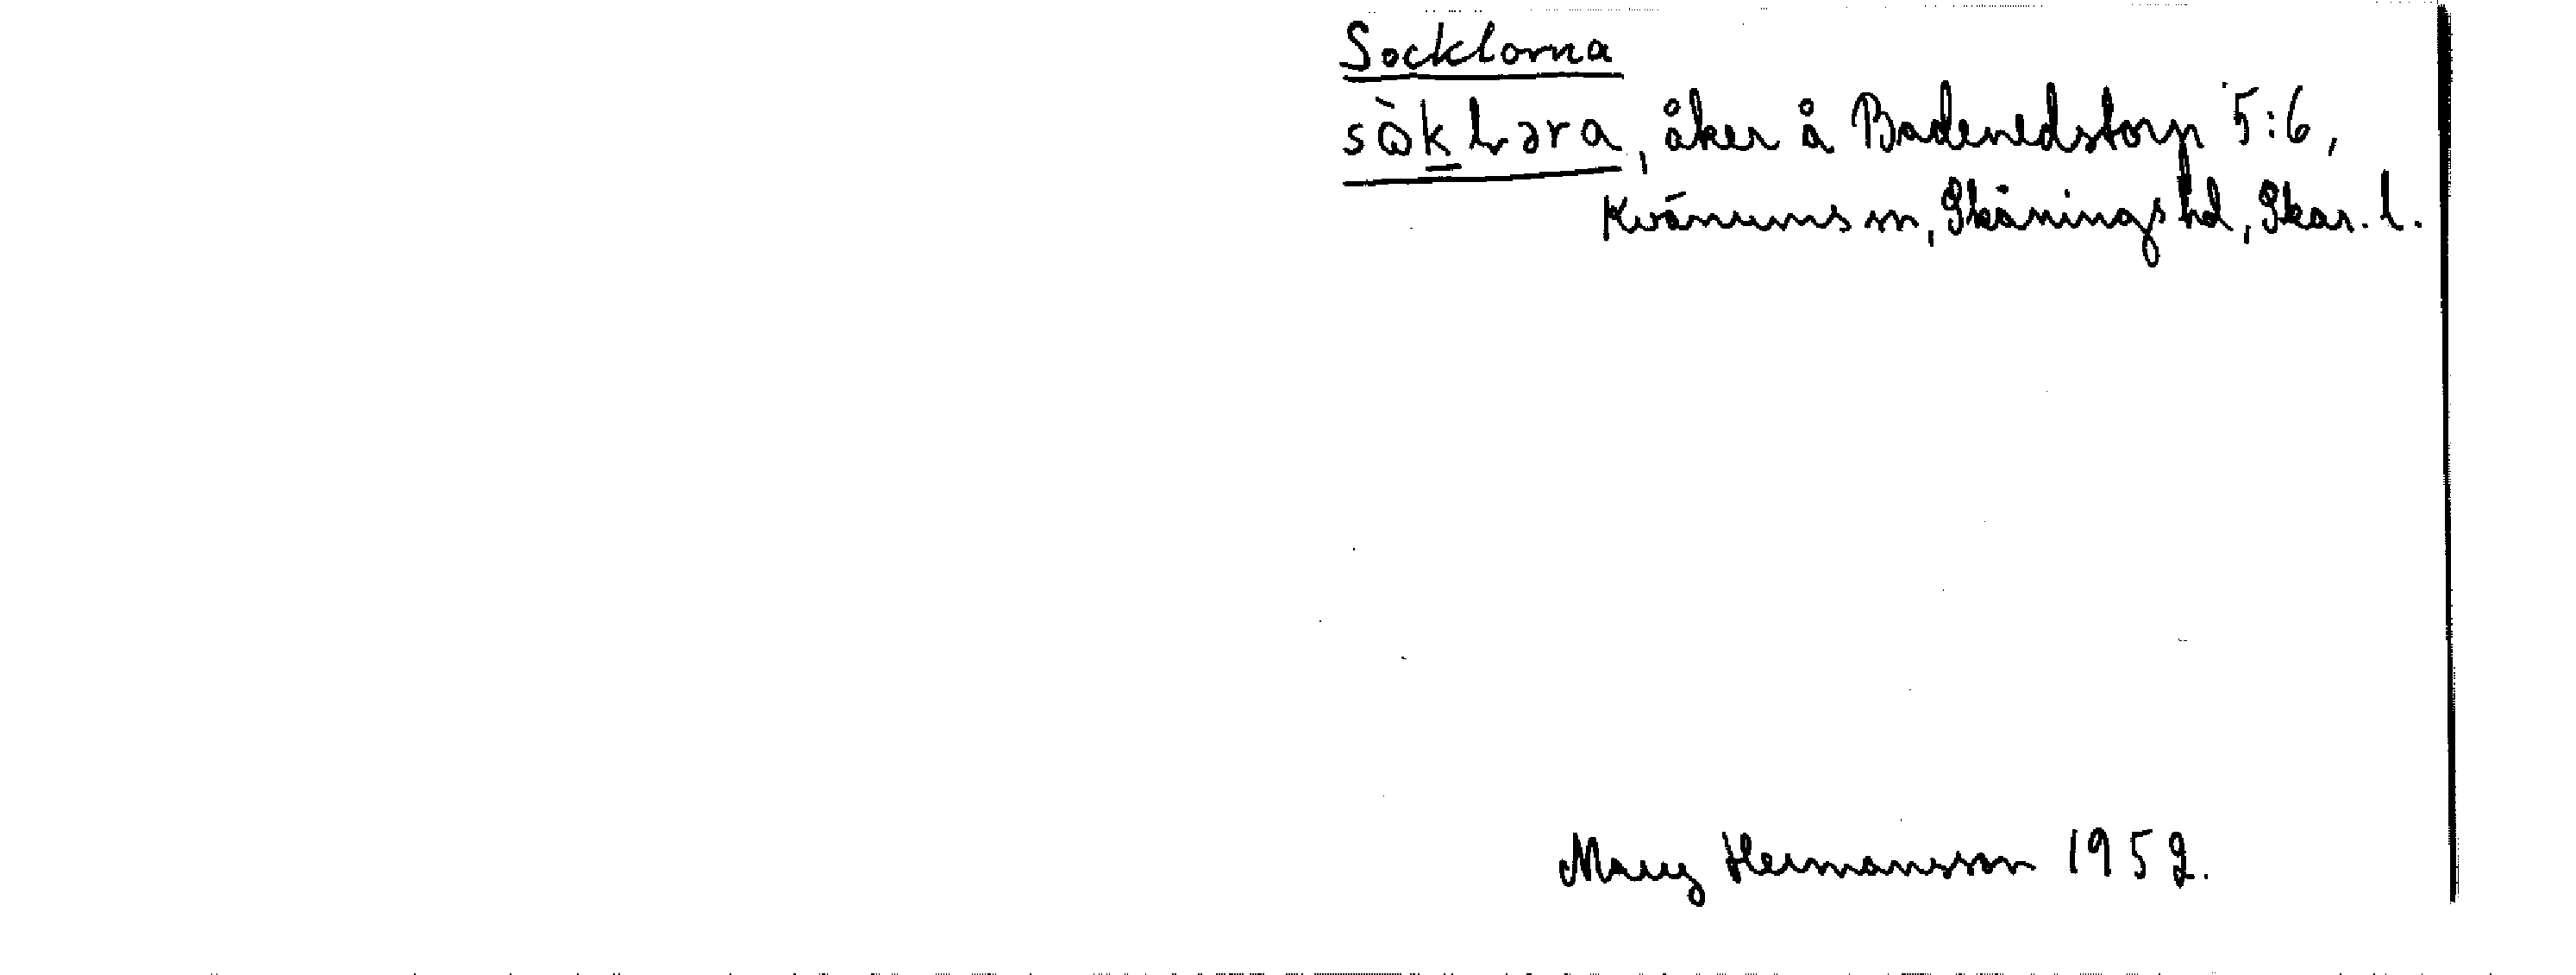 Socklorna
sök̲ləra, åker å Badenedstorp 5:6,
Kvänums sn, Skånings hd, Skar. l.
Mary Hermansson 1952.